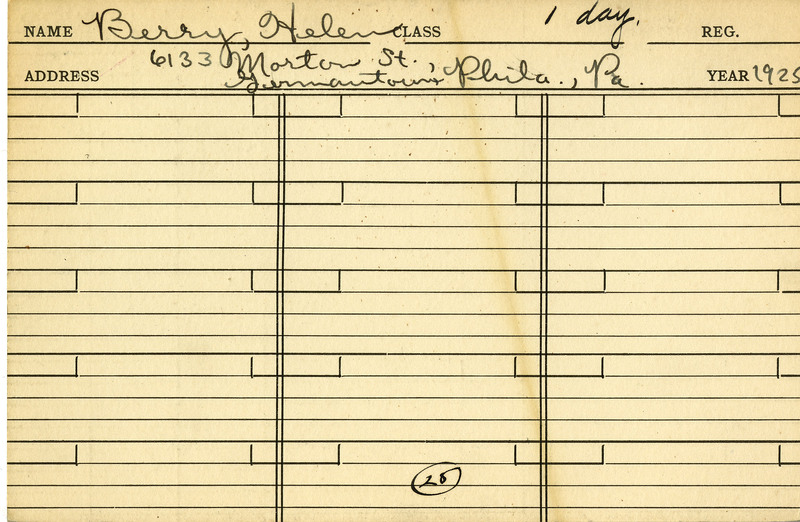 NAME Berry, Helen CLASS 1 day. REG.
ADDRESS 6133 Morton St.,
Germantown Phila., Pa. YEAR 1925